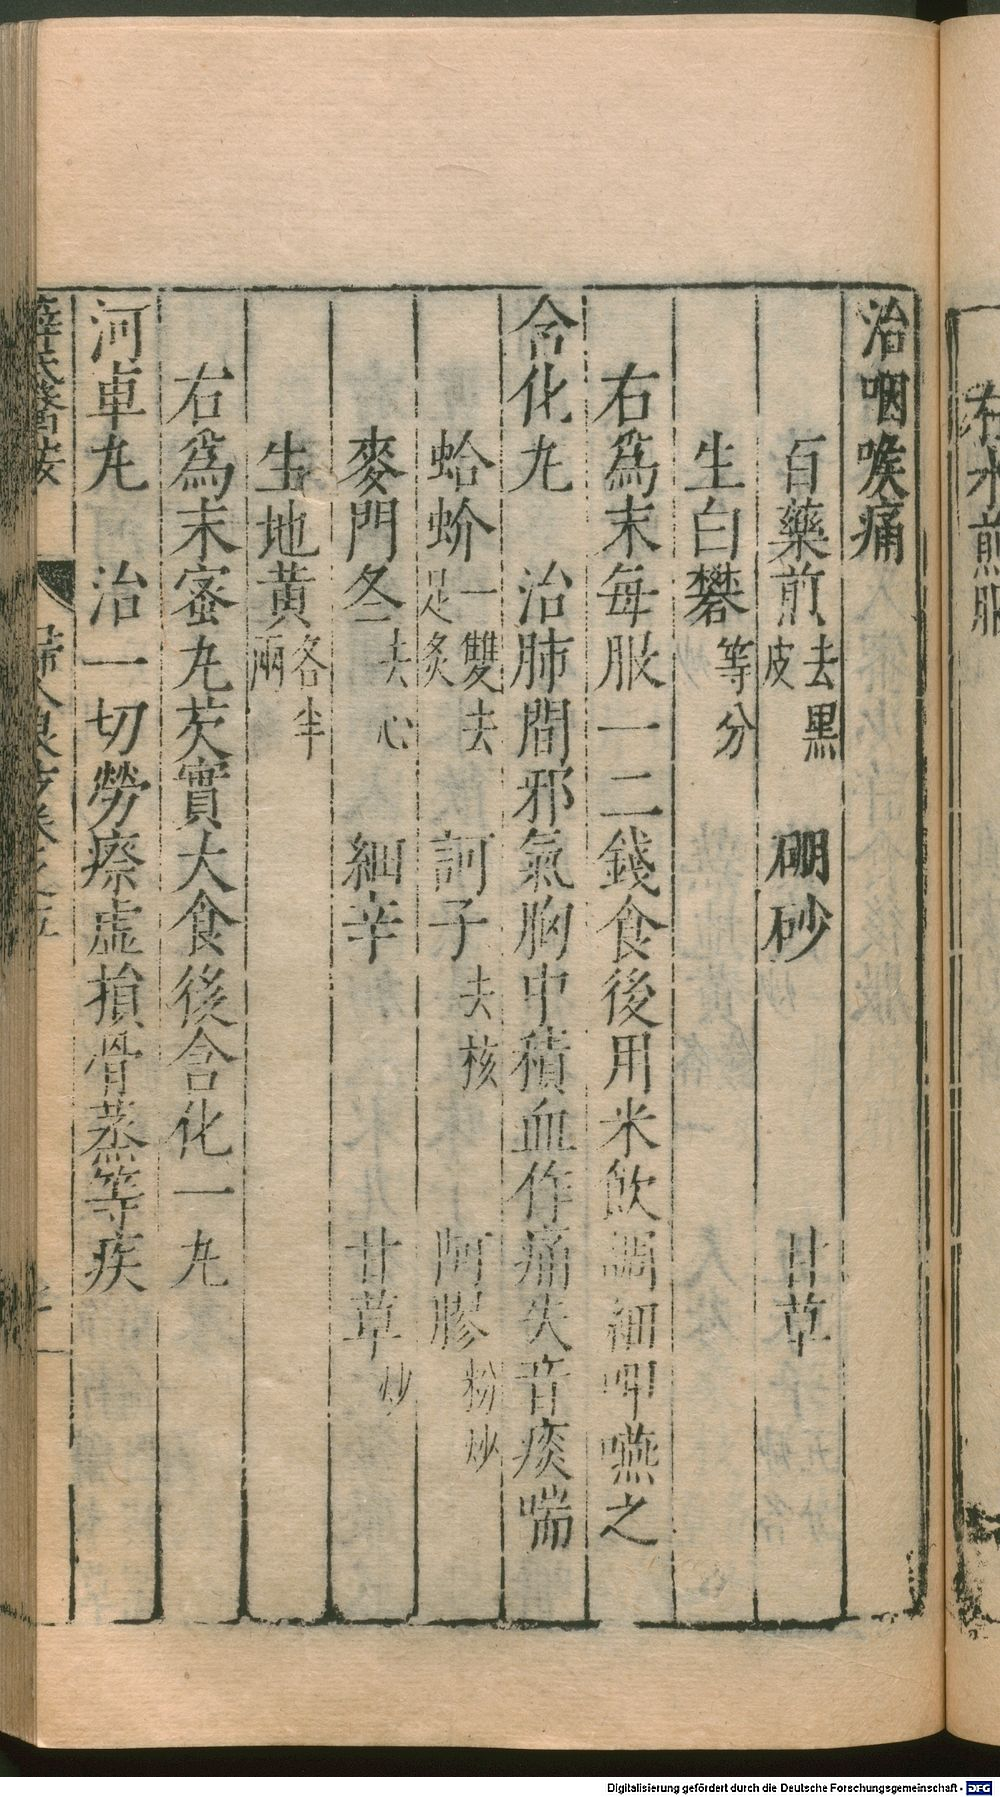 右水煎服
治咽喉痛
百藥煎去黑皮 硼砂 甘草
生白礬等分
右爲末每服一二錢食後用米飲調細呷嚥之
含化丸 治肺間邪氣胸中積血作痛失音痰喘
蛤蚧一雙去足炙 訶子去核 阿膠粉炒
麥門冬去心 細辛 甘草炒
生地黃各半兩
右爲末蜜丸芡實大食後含化一丸
河車丸 治一切勞瘵虛損骨蒸等疾
薛氏醫按 婦人良方卷之五
Digitalisierung gefördert durch die Deutsche Forschungsgemeinschaft - DFG